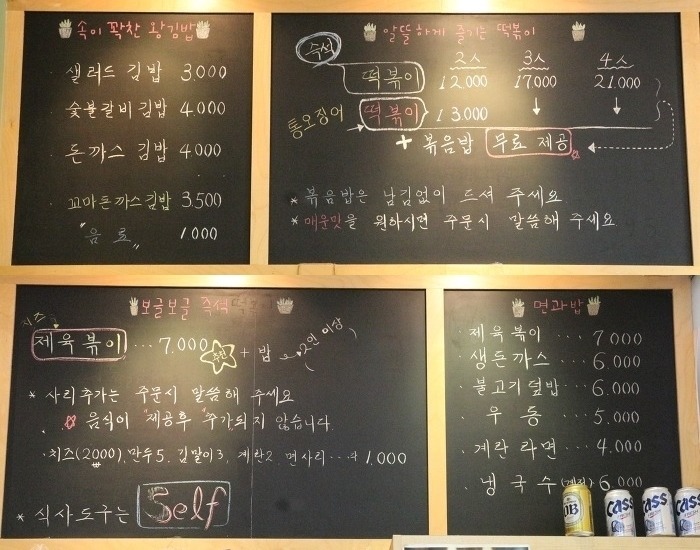 속이 꽉찬 왕김밥
샐러드 김밥 3.000
숯불갈비김밥 4.000
돈까스 김밥 4.000
꼬마돈까스김밥 3.500
"음료" 1.000
알뜰하게 즐기는 떡볶이
즉석
2人 3人 4人
떡볶이 12.000 17.000 21.000
통오징어 떡볶이 13.000
+ 볶음밥 무료 제공
* 볶음밥은 남김없이 드셔 주세요
* 매운맛을 원하시면 주문시 말씀해 주세요
보글보글 즉석떡볶이
치즈
제육볶이 ... 7.000 추천 + 밥 → 2인 이상
* 사리추가는 주문시 말씀해 주세요
음식이 "제공후" 추가되지 않습니다.
치즈(2000), 만두5. 김말이3, 계란2. 면사리 ... 1.000
* 식사도구는 Self
면과밥
제육볶이 ... 7000
생돈까스 ... 6.000
불고기덮밥 ... 6.000
우동 ... 5.000
계란 라면 ... 4.000
냉국수(계절) 6.000
OB Cass Cass Cass